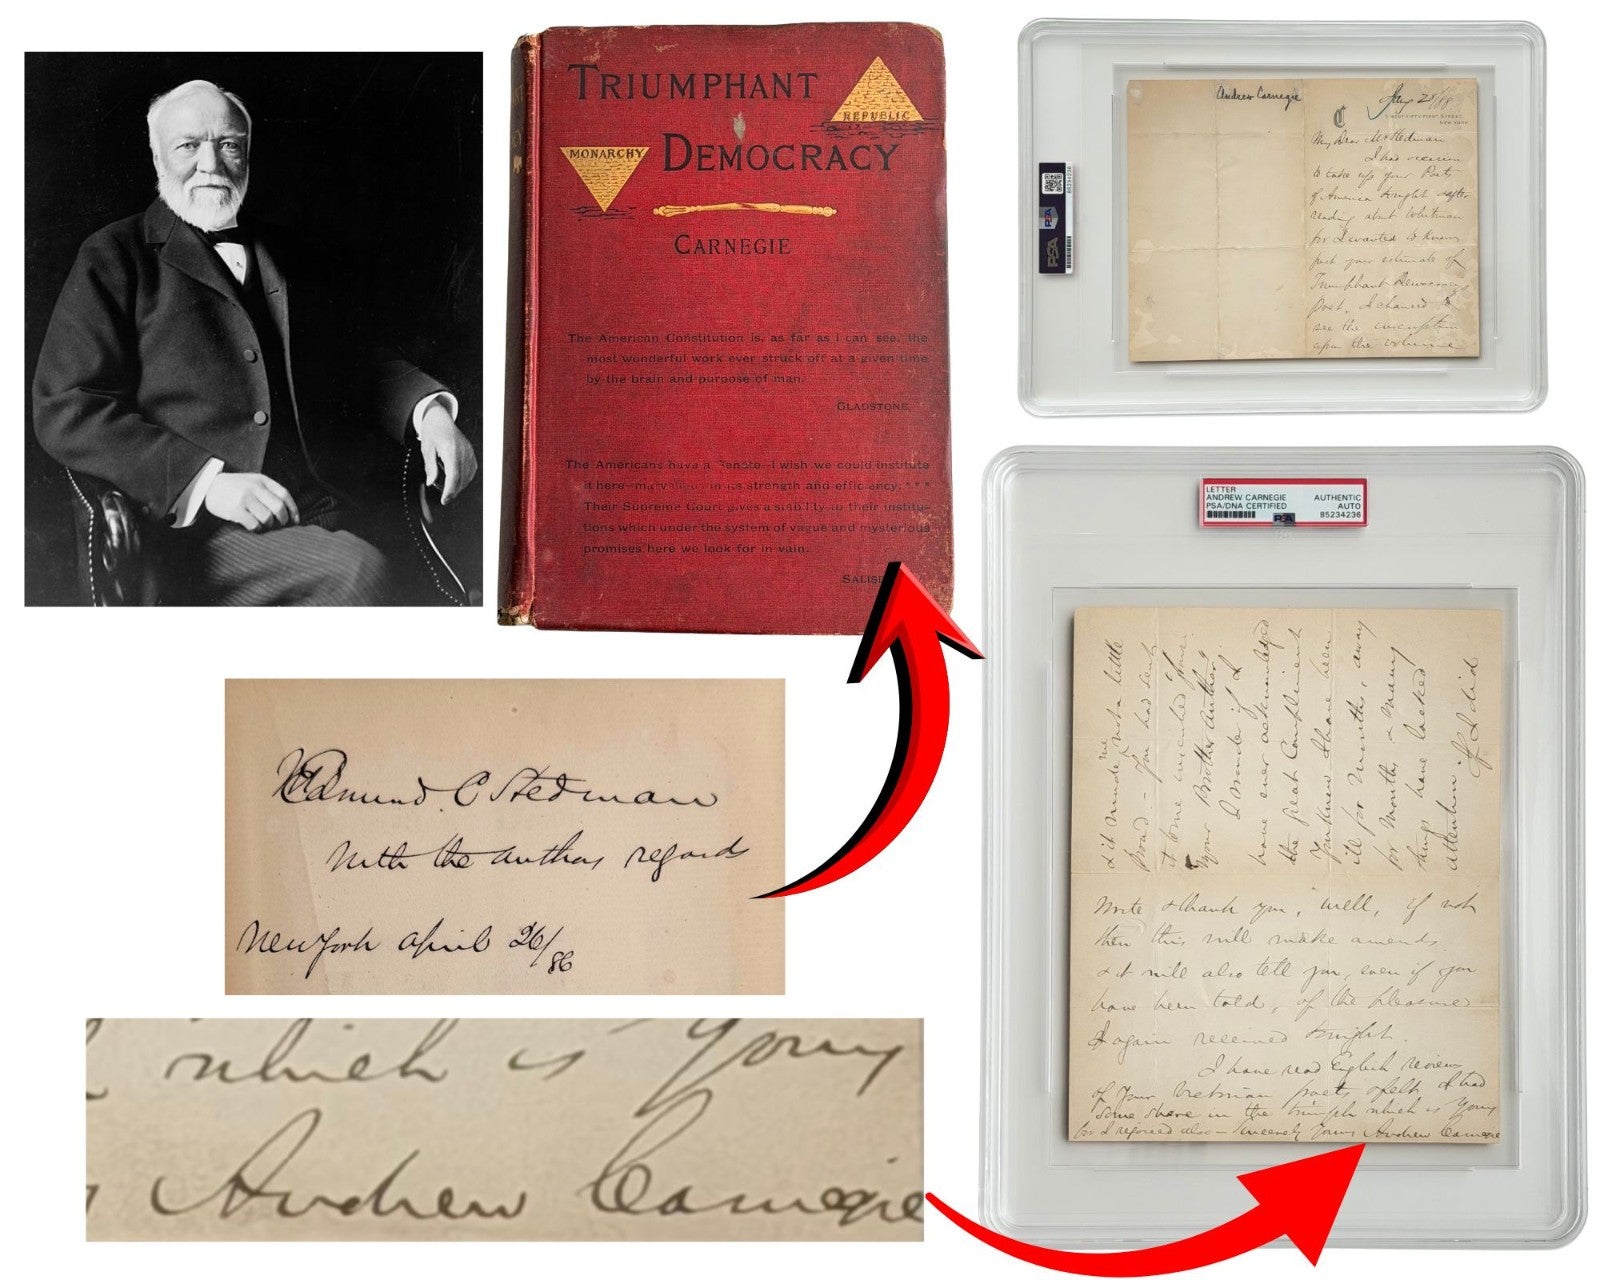 TRIUMPHANT
REPUBLIC
MONARCHY
DEMOCRACY
CARNEGIE
The American Constitution is, as far as I can see, the
most wonderful work ever struck off at a given time
by the brain and purpose of man.
GLADSTONE.
The Americans have a Senate—I wish we could institute
it here—marvellous in its strength and efficiency. * * *
Their Supreme Court gives a stability to their institu-
tions which under the system of vague and mysterious
promises here we look for in vain.
Edmund C Stedman
With the authors regards
New York April 26/86
which is Yours
Andrew Carnegie
Andrew Carnegie
5 WEST FIFTY-FIRST STREET,
NEW YORK
My Dear Mr Stedman
I had occasion
to take up your Poets
of America tonight after
reading about Whitman
for I wanted to know
just your estimate of
Triumphant Democracys
Poet, I chanced to
see the inscription
upon the volume
PSA
85234236
LETTER
ANDREW CARNEGIE AUTHENTIC
PSA/DNA CERTIFIED AUTO
PSA 85234236
& it made me not a little
proud — You had sent
it some inscribed from
Your Brother Author
I wonder if I
have ever acknowledged
the great Compliment
You know I have been
ill for months, away
for months & many
things have lacked
attention. If I did
write & thank you, well, if not
then this will make amends.
& it will also tell you, even if you
have been told, of the pleasure
I again received tonight.
I have read English reviews
of Your Victorian poets & felt I had
some share in the triumph which is Yours
for I rejoiced also — Sincerely Yours Andrew Carnegie